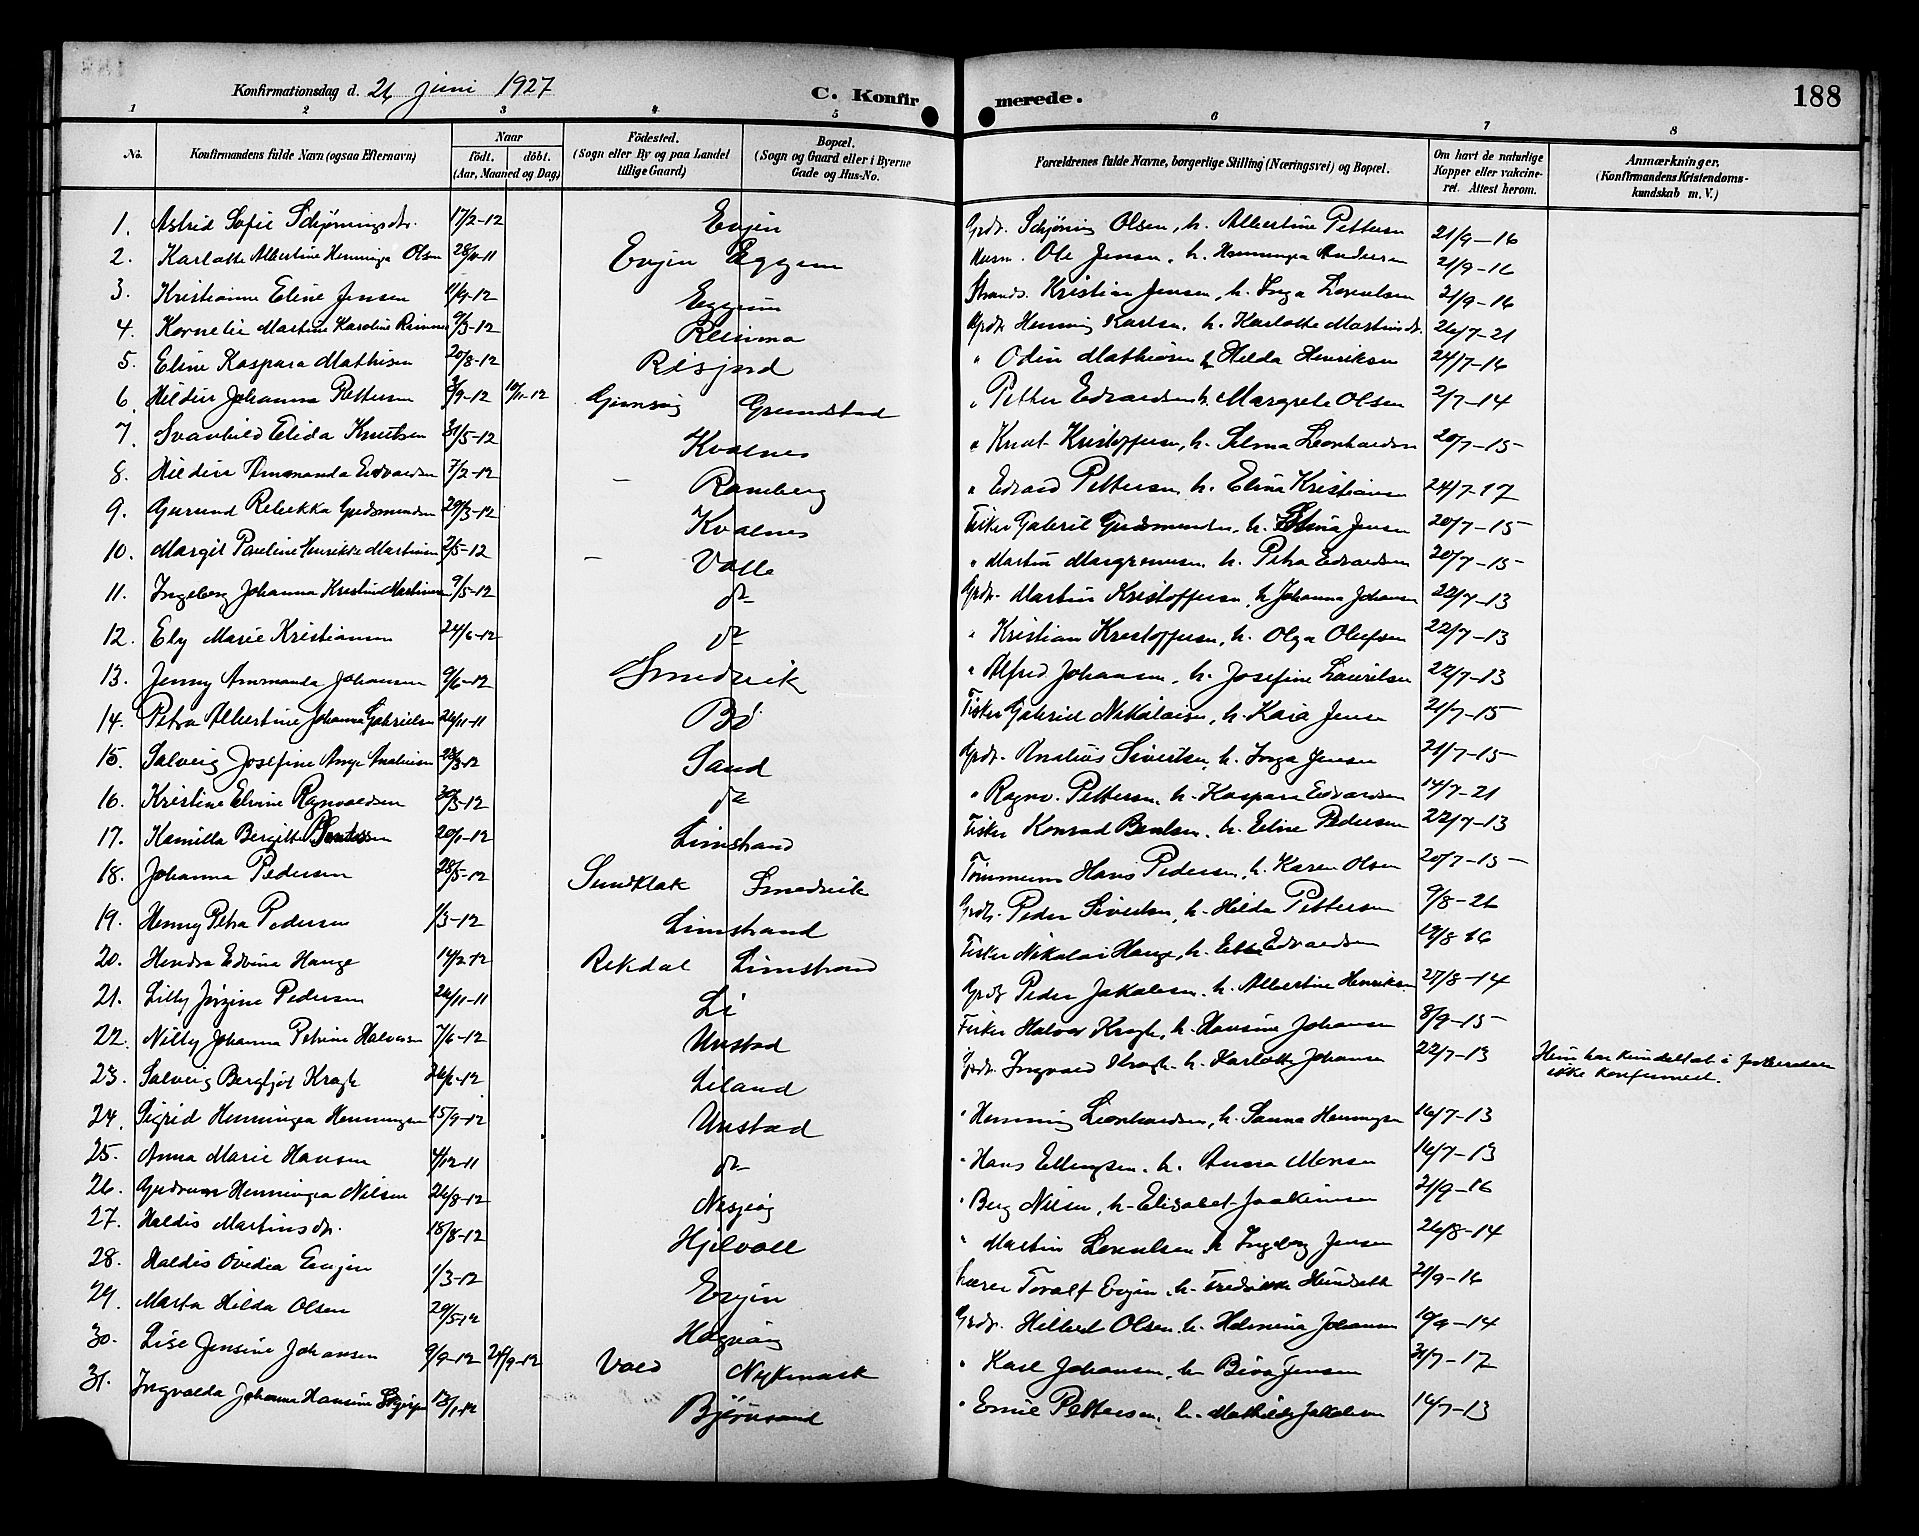 Konfirmationsdag d. 26 juni 1927 C. Konfirmerede. 188
1 2 3 4 5 6 7 8
No. Konfirmandens fulde Navn (ogsaa Efternavn) Naar födt. döbt. (Aar, Maaned og Dag) Födested. (Sogn eller By og paa Landet tillige Gaard) Bopæl. (Sogn og Gaard eller i Byerne Gade og Hus-No. Forældrenes fulde Navne, borgerlige Stilling (Næringsvei) og Bopæl. Om havt de naturlige Kopper eller vakcineret. Attest herom. Anmærkninger. (Konfirmandens Kristendomskundskab m. V.)
1. Astrid Sofie Schjørningsdtr. 17/2-12 Evjen Grdr. Schjøning Olsen, h. Albertine Pettersen 21/9-16
2. Karlotte Albertine Henninga Olsen 28/11-11 Evjen Eggum Husm. Ole Jensen, h. Henninga Andersen 21/9-16
3. Kristianne Eline Jensen 9-12 Eggum Strands. Kristian Jensen, h. Inga Lorentsen 21/9-16
4. Kornelie Martine Karoline 9/3-12 Grdr. Henning Karlsen, h. Karlotte Martinsdtr. 26/7-21
5. Eline Kaspara Mathisen 20/8-12 Risjord " Odin Mathisen h. Hilda Henriksen 24/7-16
6. Hildur Johanna Pettersen 3/9-12 10/11-12 Gimsøy Grundstad " Petter Edvardsen h. Margrete Olsen 2/7-14
7. Svanhild Elida Knutsen 31/5-12 Kvalnes " Knut Kristoffersen, h. Selma Leonhardsen 20/7-15
8. Hildur Ammanda Edvardsen 7/2-12 - Ramberg " Edvard Pettersen h. Elina Kristiansen 24/7-17
9. Gurund Rebekka Gudmundsen 29/3-12 Kvalnes Fisker Gabriel Gudmundsen, h. Jensen 20/7-15
10. Margit Pauline Henrikke Martinsen 2/5-12 - Valle " Martin h. Petra Edvardsen 20/7-15
11. Ingeborg Johanna Kristine Martinsen 9/5-12 do Grdr. Martin Kristoffersen, h. Johanna Johansen 22/7-13
12. Ely Marie Kristiansen 24/6-12 do " Kristian Kristoffersen, h. Olga Olufsen 22/7-13
13. Jenny Ammanda Johansen 9/6-12 Smedvik " Alfred Johansen, h. Josefine Lauritsen 22/7-13
14. Petra Albertine Johanna Gabrielsen 26/11-11 Bø Fisker Gabriel Nikolaisen, h. Kaia Jensen 21/7-15
15. Solveig Josefine Ange Analiusen 28/3-12 Sand Grdr. Analius Sivertsen, h. Inga Jensen 21/7-15
16. Kristine Elvine Ragnvaldsen 30/3-12 do " Ragnv. Pettersen, h. Kaspara Edvardsen 14/7-21
17. Kamilla Bergitte Bentsen 20/1-12 Limstrand Fisker Konrad Bentsen, h. Eline Pedersen 22/7-13
18. Johanna Pedersen 28/5-12 Sundklak Smedvik Tømmerm Hans Pedersen, h. Karen Olsen 20/7-15
19. Henny Petra Pedersen 1/3-12 Limstrand Grdr. Peder Sivertsen, h. Hilda Pettersen 9/8-26
20. Hendra Edvina Hauge 14/2-12 Rekdal Limstrand Fisker Nikolai Hauge, h. Edvardsen 19/8-16
21. Lilly Jørgine Pedersen 26/11-11 Li Grdr. Peder Jakobsen. h. Albertine Henriksen 27/8-14
22. Nilly Johanna Petrine Halvorsen 7/6-12 Unstad Fisker Halvor Kragh, h. Hansine Johansen 8/9-15
23. Solveig Bergfjot Kragh 26/6-12 Leland Grdr. Ingvard Kragh h. Karlotte Johansen 22/7-13 Hun har kun deltat i forberedelsen
ikke konfirmert.
24. Sigrid Henninga Henningsen 15/9-12 Unstad " Henning Leonhardsen, h. Sanna Henningsen 16/7-13
25. Anna Marie Hansen 4/12-11 do " Hans Ellingsen. h. Anna Monsen 16/7-13
26. Gudrun Henninga Nilsen 26/8-12 " Berg Nilsen, h. Elisabet Joakimsen 21/9-16
27. Haldis Martinsdtr. 18/8-12 Hjelvoll " Martin Lorentsen h Ingeborg Jensen 26/8-14
28. Haldis Ovidia Evjen 1/3-12 Evjen Lærer Toralf Evjen, h. Fredrikke Hundseth 21/9-16
29. Marta Hilda Olsen 29/5-12 Hagvåg Grdr. Hilbert Olsen. h. Helmina Johansen 19/9-14
30. Lise Jensine Johansen 9/9-12 24/9-12 Vold Nykmark " Karl Johansen, h. Jensen 31/7-17
31. Ingvalda Johanna Hansine 12/1-12 Bjørnsand " Emil Pettersen, h. Mathilde Jakobsen 14/7-13